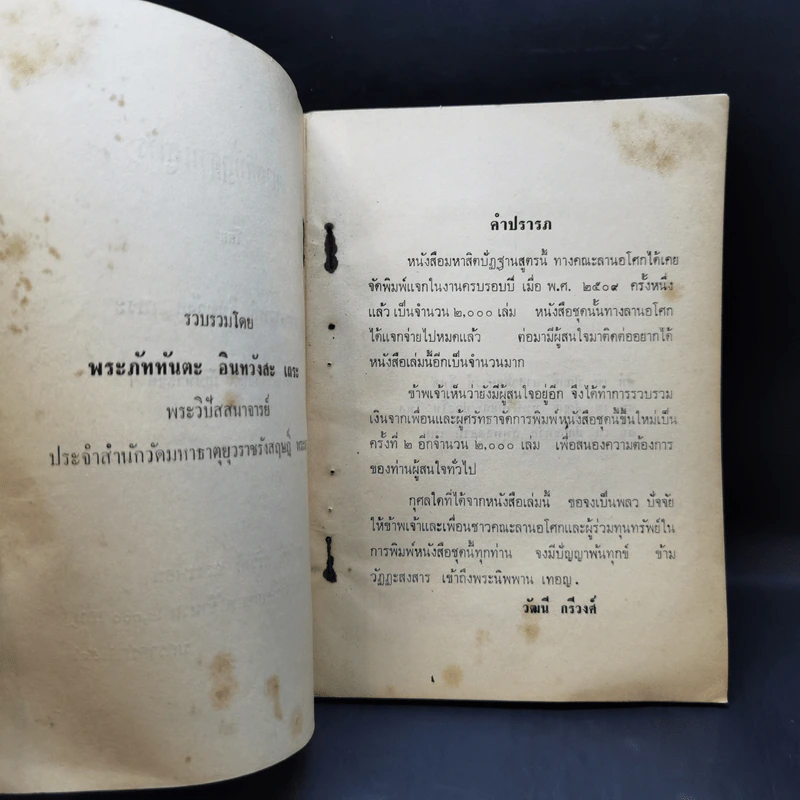 รวบรวมโดย
พระภัททันตะ อินทวังสะ เถระ
พระวิปัสสนาจารย์
ประจำสำนักวัดมหาธาตุยุวราชรังสฤษฎิ์
คำปรารภ
หนังสือมหาสติปัฏฐานสูตรนี้ ทางคณะลานอโศกได้เคย
จัดพิมพ์แจกในงานครบรอบปี เมื่อ พ.ศ. ๒๕๐๙ ครั้งหนึ่ง
แล้ว เป็นจำนวน ๒,๐๐๐ เล่ม หนังสือชุดนั้นทางลานอโศก
ได้แจกจ่ายไปหมดแล้ว ต่อมามีผู้สนใจมาติดต่ออยากได้
หนังสือเล่มนี้อีกเป็นจำนวนมาก
ข้าพเจ้าเห็นว่ายังมีผู้สนใจอยู่อีก จึงได้ทำการรวบรวม
เงินจากเพื่อนและผู้ศรัทธาจัดการพิมพ์หนังสือชุดนี้ขึ้นใหม่เป็น
ครั้งที่ ๒ อีกจำนวน ๒,๐๐๐ เล่ม เพื่อสนองความต้องการ
ของท่านผู้สนใจทั่วไป
กุศลใดที่ได้จากหนังสือเล่มนี้ ขอจงเป็นพลว ปัจจัย
ให้ข้าพเจ้าและเพื่อนชาวคณะลานอโศกและผู้ร่วมทุนทรัพย์ใน
การพิมพ์หนังสือชุดนี้ทุกท่าน จงมีปัญญาพ้นทุกข์ ข้าม
วัฏฏะสงสาร เข้าถึงพระนิพพาน เทอญ.
วัฒนี กรีวงศ์